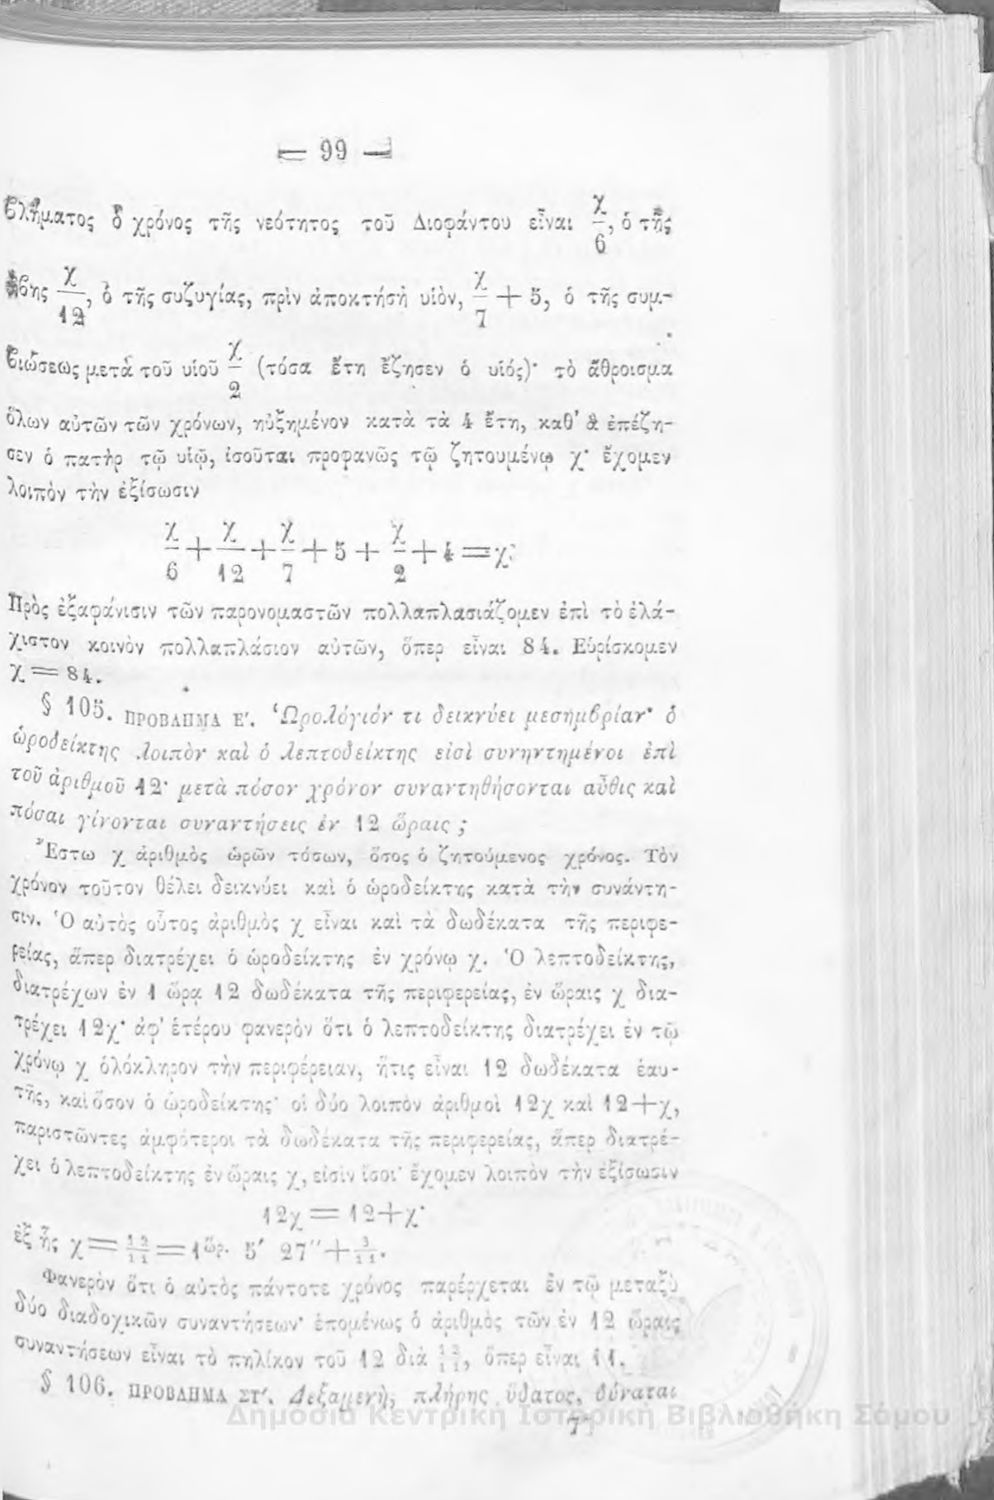 = 99 =
βλήματος ὁ χρόνος τῆς νεότητος τοῦ Διοφάντου εἶναι χ/6, ὁ τῆς
ἥβης χ/12, ὁ τῆς συζυγίας, πρὶν ἀποκτήσῃ υἱὸν, χ/7 + 5, ὁ τῆς συμ-
βιώσεως μετὰ τοῦ υἱοῦ χ/2 (τόσα ἔτη ἔζησεν ὁ υἱός)· τὸ ἄθροισμα
ὅλων αὐτῶν τῶν χρόνων, ηὐξημένον κατὰ τὰ 4 ἔτη, καθ' ἃ ἐπέζη-
σεν ὁ πατὴρ τῷ υἱῷ, ἰσοῦται προφανῶς τῷ ζητουμένῳ χ· ἔχομεν
λοιπὸν τὴν ἐξίσωσιν
χ/6 + χ/12 + χ/7 + 5 + χ/2 + 4 = χ·
Πρὸς ἐξαφάνισιν τῶν παρονομαστῶν πολλαπλασιάζομεν ἐπὶ τὸ ἐλά-
χιστον κοινὸν πολλαπλάσιον αὐτῶν, ὅπερ εἶναι 84. Εὑρίσκομεν
χ = 84.
§ 105. ΠΡΟΒΛΗΜΑ Ε'. Ὡρολόγιόν τι δεικνύει μεσημβρίαν· ὁ
ὡροδείκτης λοιπὸν καὶ ὁ λεπτοδείκτης εἰσὶ συνηντημένοι ἐπὶ
τοῦ ἀριθμοῦ 12· μετὰ πόσον χρόνον συναντηθήσονται αὖθις καὶ
πόσαι γίνονται συναντήσεις ἐν 12 ὥραις ;
Ἔστω χ ἀριθμὸς ὡρῶν τόσων, ὅσος ὁ ζητούμενος χρόνος. Τὸν
χρόνον τοῦτον θέλει δεικνύει καὶ ὁ ὡροδείκτης κατὰ τὴν συνάντη-
σιν. Ὁ αὐτὸς οὗτος ἀριθμὸς χ εἶναι καὶ τὰ δωδέκατα τῆς περιφε-
ρείας, ἅπερ διατρέχει ὁ ὡροδείκτης ἐν χρόνῳ χ. Ὁ λεπτοδείκτης,
διατρέχων ἐν 1 ὥρᾳ 12 δωδέκατα τῆς περιφερείας, ἐν ὥραις χ δια-
τρέχει 12χ· ἀφ' ἑτέρου φανερὸν ὅτι ὁ λεπτοδείκτης διατρέχει ἐν τῷ
χρόνῳ χ ὁλόκληρον τὴν περιφέρειαν, ἥτις εἶναι 12 δωδέκατα ἑαυ-
τῆς, καὶ ὅσον ὁ ὡροδείκτης· οἱ δύο λοιπὸν ἀριθμοὶ 12χ καὶ 12+χ,
παριστῶντες ἀμφότεροι τὰ δωδέκατα τῆς περιφερείας, ἅπερ διατρέ-
χει ὁ λεπτοδείκτης ἐν ὥραις χ, εἰσὶν ἴσοι· ἔχομεν λοιπὸν τὴν ἐξίσωσιν
12χ = 12+χ·
ἐξ ἧς χ = 12/11 = 1ὥρ. 5' 27''+3/11.
Φανερὸν ὅτι ὁ αὐτὸς πάντοτε χρόνος παρέρχεται ἐν τῷ μεταξὺ
δύο διαδοχικῶν συναντήσεων· ἑπομένως ὁ ἀριθμὸς τῶν ἐν 12 ὥραις
συναντήσεων εἶναι τὸ πηλίκον τοῦ 12 διὰ 12/11, ὅπερ εἶναι 11.
§ 106. ΠΡΟΒΛΗΜΑ ΣΤ'. Δεξαμενὴ, πλήρης ὕδατος, δύναται
Δημόσια Κεντρική Ιστορική Βιβλιοθήκη Σάμου
7